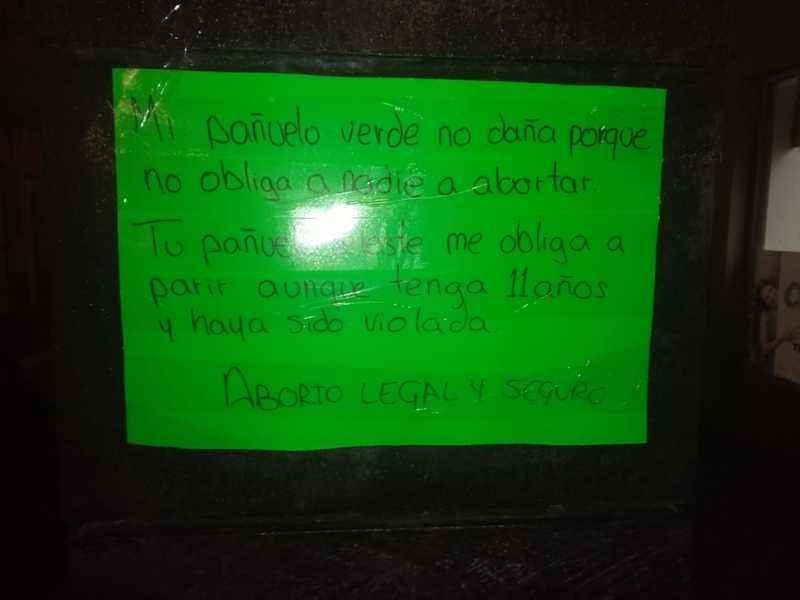 Mi pañuelo verde no daña porque
no obliga a nadie a abortar.
Tu pañuelo celeste me obliga a
parir aunque tenga 11 años
y haya sido violada.
ABORTO LEGAL Y SEGURO